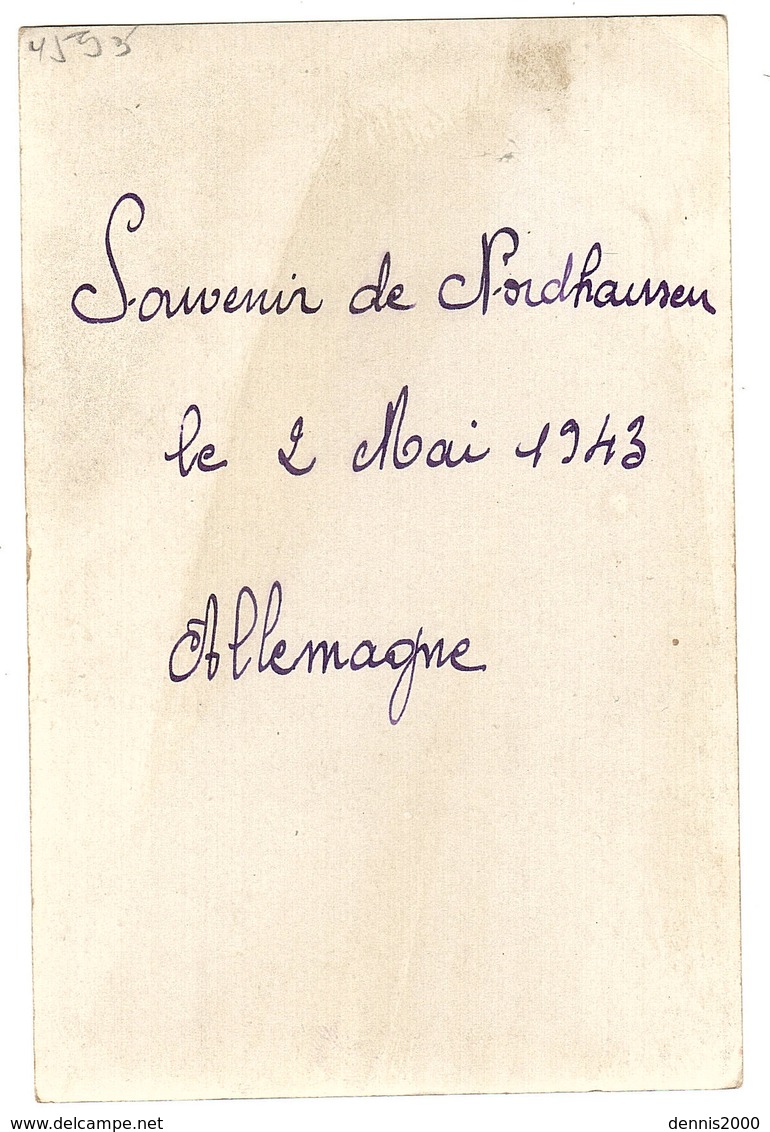 4593
Souvenir de Nordhausen
le 2 Mai 1943
Allemagne
delcampe.net
dennis2000